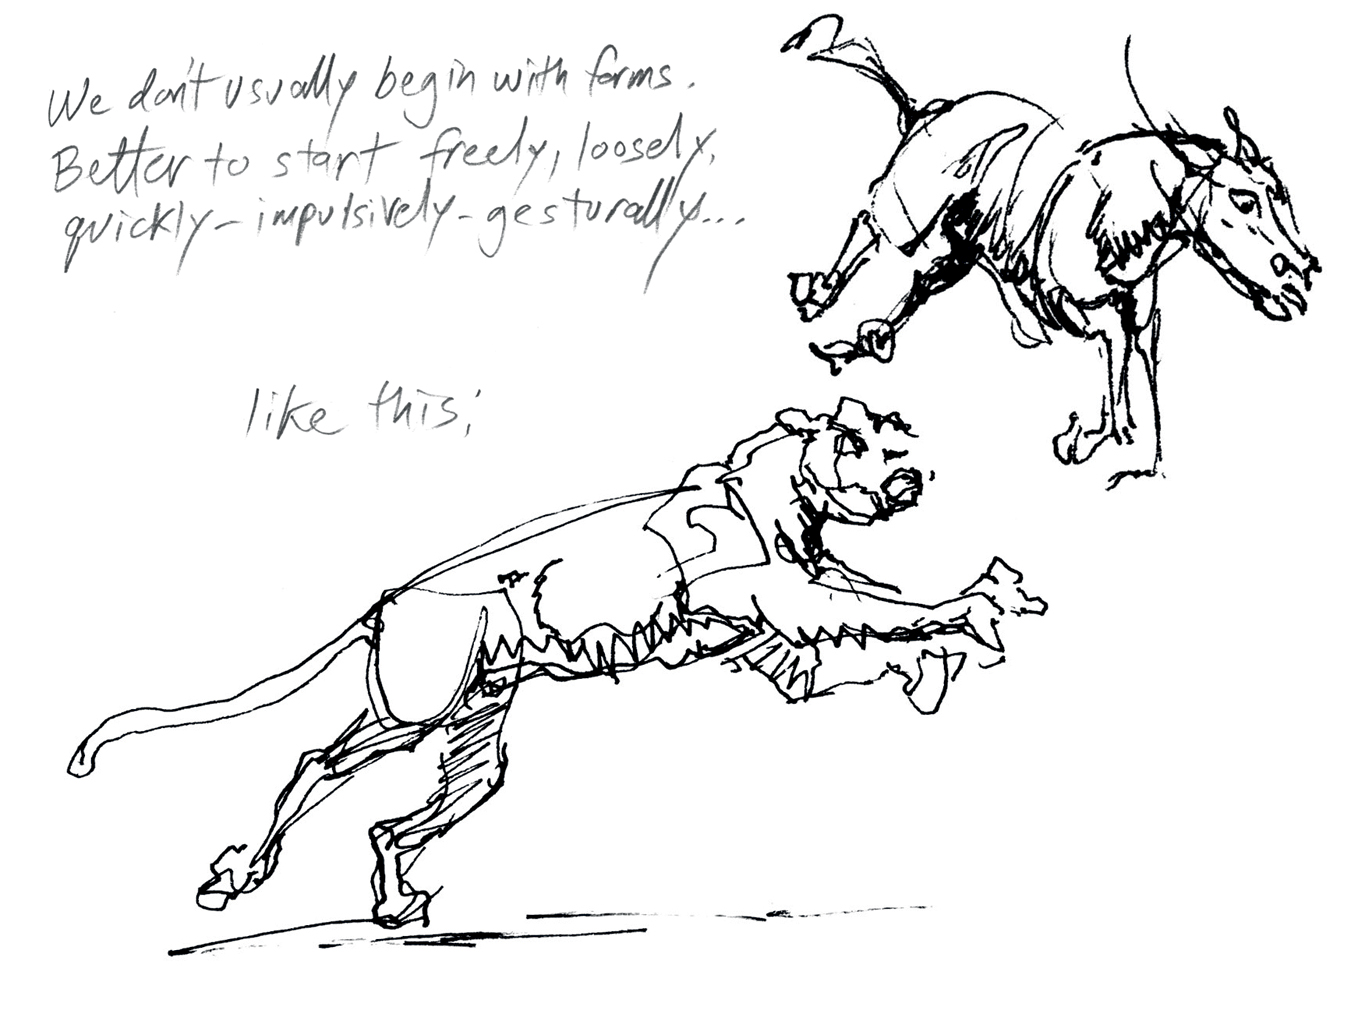 We don't usually begin with forms.
Better to start freely, loosely,
quickly-impulsively-gesturally...
like this;